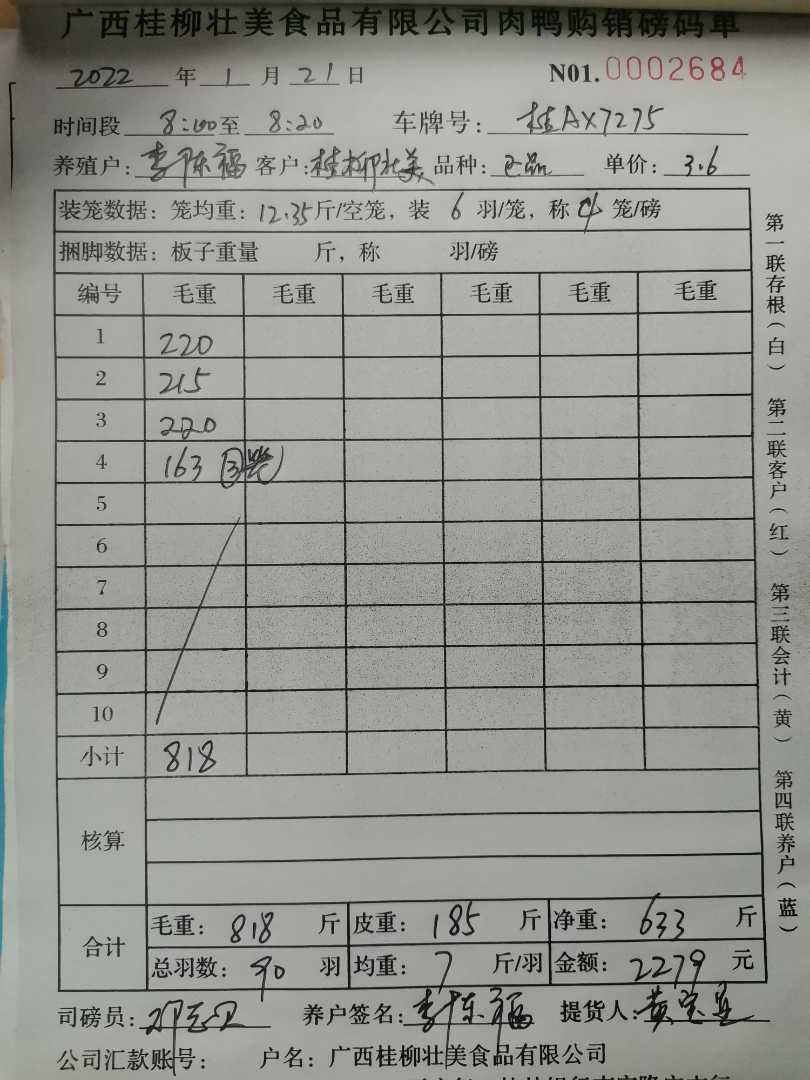 广西桂柳壮美食品有限公司肉鸭购销磅码单
2022 年 1 月 21 日 N01.0002684
时间段 8:00 至 8:20 车牌号: 桂AX7275
养殖户: 李陈福 客户: 桂柳壮美 品种: 单价: 3.6
装笼数据: 笼均重: 12.35 斤/空笼, 装 6 羽/笼, 称 4 笼/磅
捆脚数据: 板子重量 斤, 称 羽/磅
编号 毛重 毛重 毛重 毛重 毛重 毛重
1 220
2 215
3 220
4 163 ③笼
5
6
7
8
9
10
小计 818
核算
合计 毛重: 818 斤 皮重: 185 斤 净重: 633 斤
总羽数: 90 羽 均重: 7 斤/羽 金额: 2279 元
司磅员: 养户签名: 李陈福 提货人: 黄宝
公司汇款账号: 户名: 广西桂柳壮美食品有限公司
第一联存根(白) 第二联客户(红) 第三联会计(黄) 第四联养户(蓝)